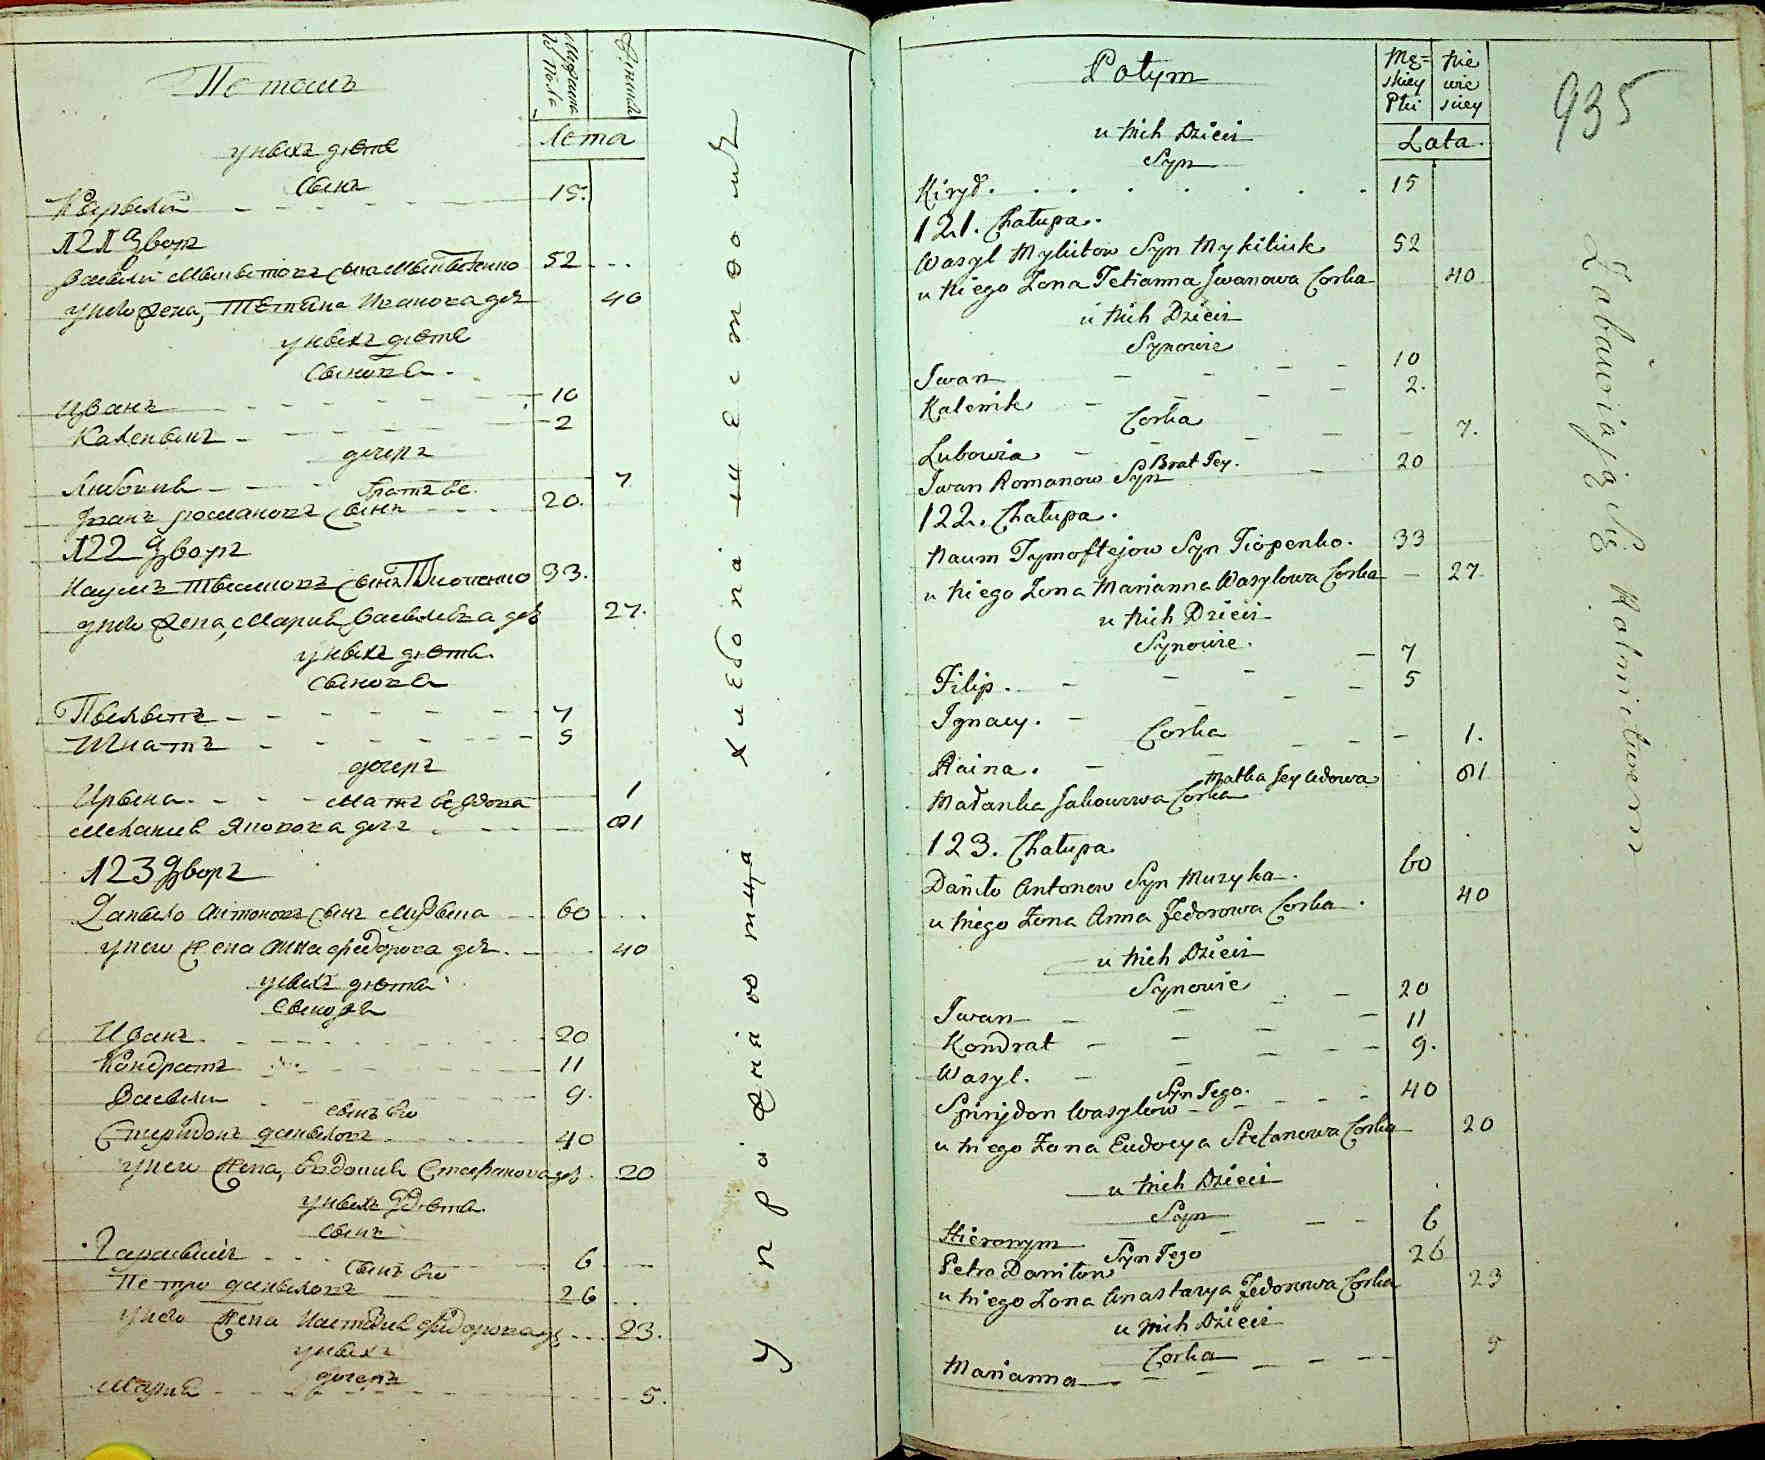 Потомъ
Мужска
го Пола
Женска
Лета
у ныхъ дѣте
сынъ
Кырылъ 15.
121 Дворъ
52
у него жена, Тетяна Иванова доч 40
у ныхъ дѣте
сынове
Иванъ 10
Каленыкъ 2
дочеръ
Любовь 7
братъ ее
Иванъ Романовъ сынъ 20.
122 Дворъ
33.
у него жена, Мария Васылева доч 27.
у ныхъ дѣте
сынове
Пылыпъ 7
Игнатъ 5
дочеръ
Ирына 1
мать ее вдова
Мелания Яковова доч 81
123 Дворъ
Даныло Антоновъ сынъ Музыка 60
у него жена Анна Федорова доч 40
у ныхъ дѣте
сынове
Иванъ 20
Кондратъ 11
Васыль 9.
сынъ его
Спырыдонъ Даныловъ 40
у него жена, Евдокия Стефанова доч 20
у ныхъ дѣте
сынъ
Гарасымъ 6
сынъ его
Петро Данылов 26
у него жена Настасия Федорова доч 23.
у ныхъ
дочеръ
Мария 5.
упражняются хлебопашеством
Potym
Męskiey Płci
Niewieściey
Lata.
u Nich Dzieci
Syn
Kirył. 15
121. Chałupa.
Wasyl Mykitow Syn Mykitiuk 52
u Niego Żona Tetianna Jwanowa Corka 40
u Nich Dzieci
Synowie
Jwan 10
Kalenik 2.
Corka
Lubowia 7.
Brat Jey.
Jwan Romanow Syn 20
122. Chałupa.
Naum Tymoftejow Syn Tiopenko. 33
u Niego Żona Marianna Wasylowa Corka 27
u Nich Dzieci
Synowie.
Filip. 7
Jgnacy. 5
Corka
Raina. 1.
Matka Jey Wdowa
Małanka Jakowowa Corka 81
123. Chałupa
Daniło Antonow Syn Muzyka. 60
u Niego Żona Anna Fedorowa Corka. 40
u Nich Dzieci
Synowie
Jwan 20
Kondrat 11
Wasyl. 9.
Syn Jego.
Spirydon Wasylow 40
u Niego Żona Eudocya Stefanowa Corka 20
u Nich Dzieci
Syn
Hieronym 6
Syn Jego
Petro Daniłow 26
u Niego Żona Anastazya Fedorowa Corka 23
u Nich Dzieci
Corka
Marianna 5
935
Zabawiają Się Rolnictwem